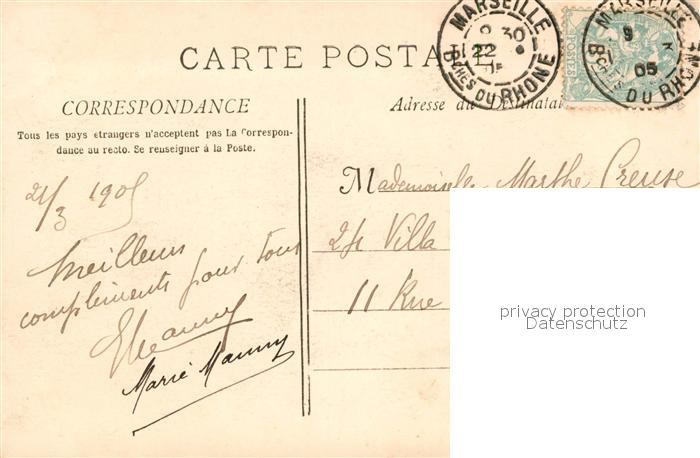 CARTE POSTALE
MARSEILLE
9 30
22
05
Bches DU RHONE
MARSEILLE
9
05
Bches DU RHONE
POSTES
CORRESPONDANCE
Tous les pays étrangers n'acceptent pas La Correspon-
dance au recto. Se renseigner à la Poste.
Adresse du Destinata
21/3 1905
Meilleurs
compliments pour tous
Marie
Mademoiselle Marthe Creuse
24 Villa
11 Rue
privacy protection
Datenschutz